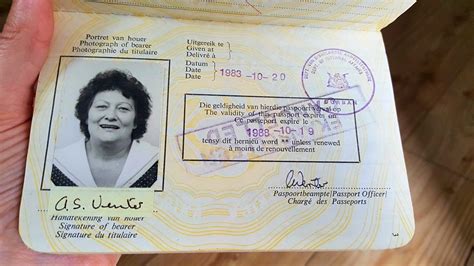 Portret van houer
Photograph of bearer
Photographie du titulaire
Uitgereik te
Given at
Délivré à
Datum
Date
Date
1983-10-20
Die geldigheid van hierdie paspoort verval op
The validity of this passport expires on
Ce passeport expire le
1988-10-19
tensy dit hernieu word ** unless renewed
à moins de renouvellement
A.S. Venter
Handtekening van houer
Signature of bearer
Signature du titulaire
Paspoortbeampte/Passport Officer/
Chargé des Passeports